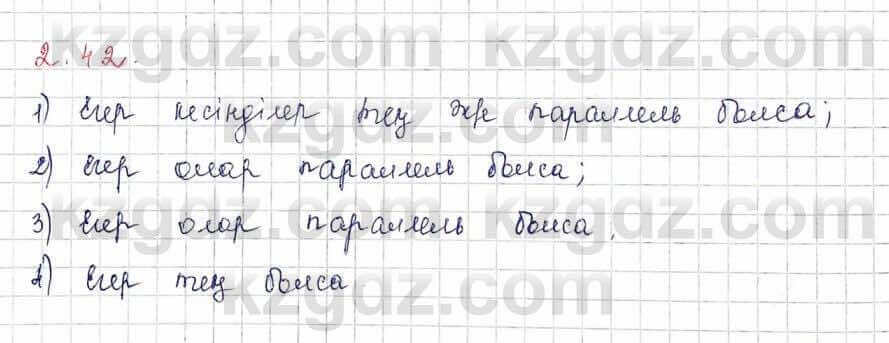 kzgdz.com kzgdz.com
2.42.
1) Егер кесінділер тең ж/е параллель болса;
kzgdz.com kzgdz.com
2) Егер олар параллель болса;
kzgdz.com kzgdz.com
3) Егер олар параллель болса.
4) Егер тең болса
kzgdz.com kzgdz.com